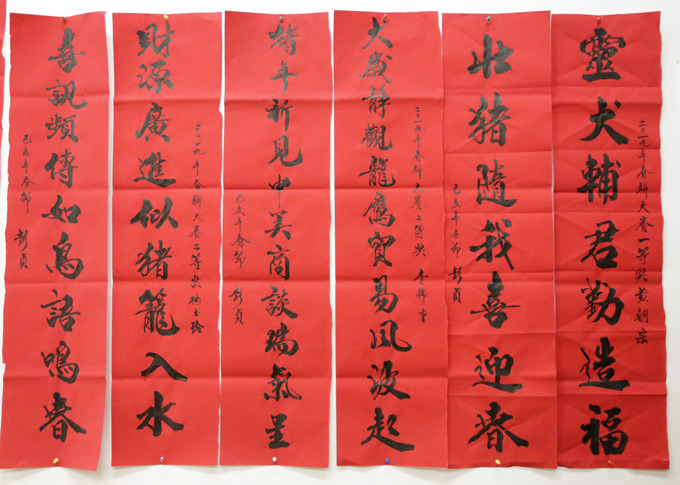 靈犬輔君勤造福
二〇一九年春聯大賽一等奖 黄朝宗
壯豬隨我喜迎春
己亥年春節 彭貞
犬歲靜觀龍鷹貿易風波起
二〇一九年春聯大賽二等奖 李錦重
豬年祈見中美商談瑞氣呈
己亥年春節 彭貞
財源廣進似豬籠入水
二〇一九年春聯大賽二等奖
喜訊頻傳如鳥語鳴春
己亥年春節 彭貞